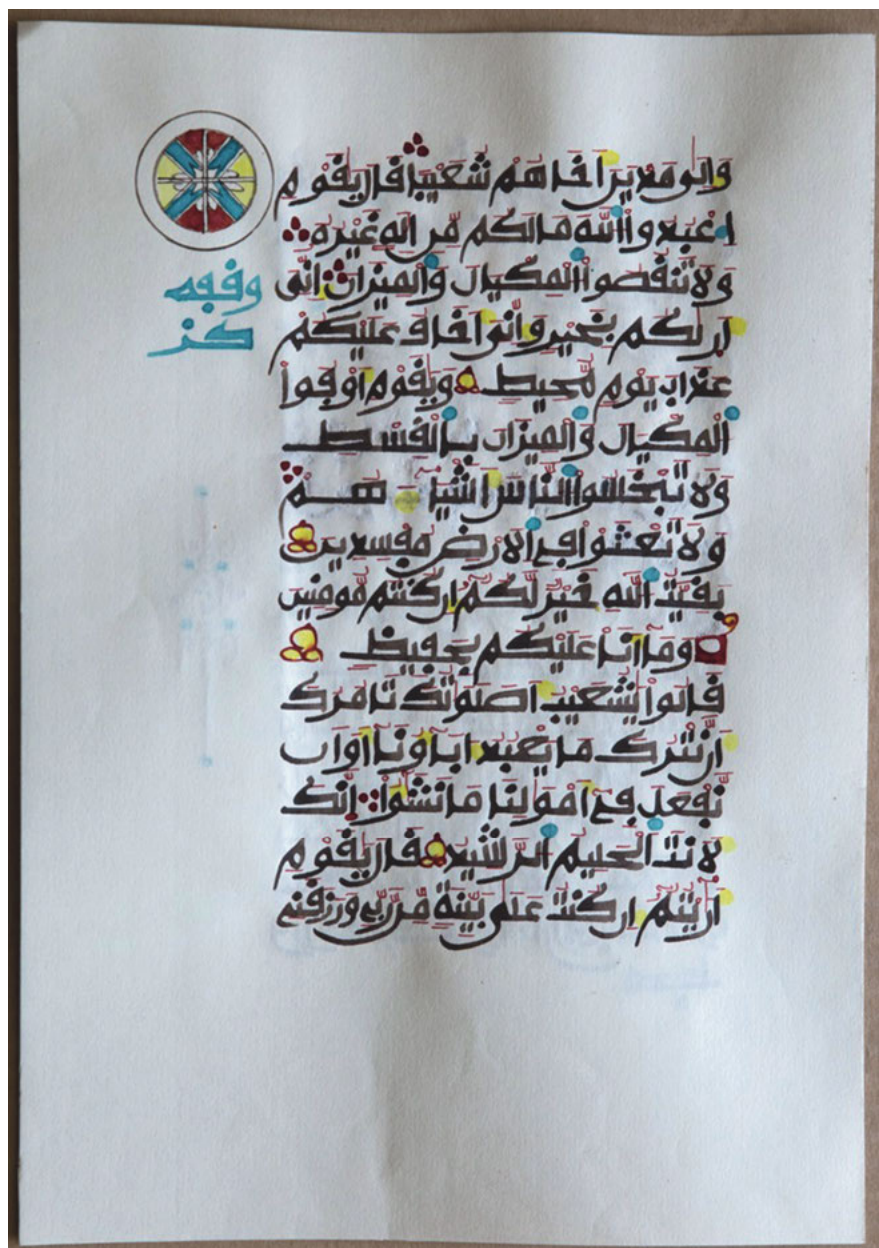 وَإِلَىٰ مَدْيَنَ أَخَاهُمْ شُعَيْبًا قَالَ يَٰقَوْمِ
اعْبُدُوا اللَّهَ مَا لَكُم مِّنْ إِلَٰهٍ غَيْرُهُ
وَلَا تَنقُصُوا الْمِكْيَالَ وَالْمِيزَانَ إِنِّي
أَرَىٰكُم بِخَيْرٍ وَإِنِّي أَخَافُ عَلَيْكُمْ
عَذَابَ يَوْمٍ مُّحِيطٍ وَيَٰقَوْمِ أَوْفُوا
الْمِكْيَالَ وَالْمِيزَانَ بِالْقِسْطِ
وَلَا تَبْخَسُوا النَّاسَ أَشْيَاءَهُمْ
وَلَا تَعْثَوْا فِي الْأَرْضِ مُفْسِدِينَ
بَقِيَّتُ اللَّهِ خَيْرٌ لَّكُمْ إِن كُنتُم مُّومِنِينَ
وَمَا أَنَا عَلَيْكُم بِحَفِيظٍ
قَالُوا يَٰشُعَيْبُ أَصَلَوَٰتُكَ تَامُرُكَ
أَن نَّتْرُكَ مَا يَعْبُدُ ءَابَاؤُنَا أَوْ أَن
نَّفْعَلَ فِي أَمْوَٰلِنَا مَا نَشَٰٓؤُا إِنَّكَ
لَأَنتَ الْحَلِيمُ الرَّشِيدُ قَالَ يَٰقَوْمِ
أَرَٰيْتُمْ إِن كُنتُ عَلَىٰ بَيِّنَةٍ مِّن رَّبِّي وَرَزَقَنِي